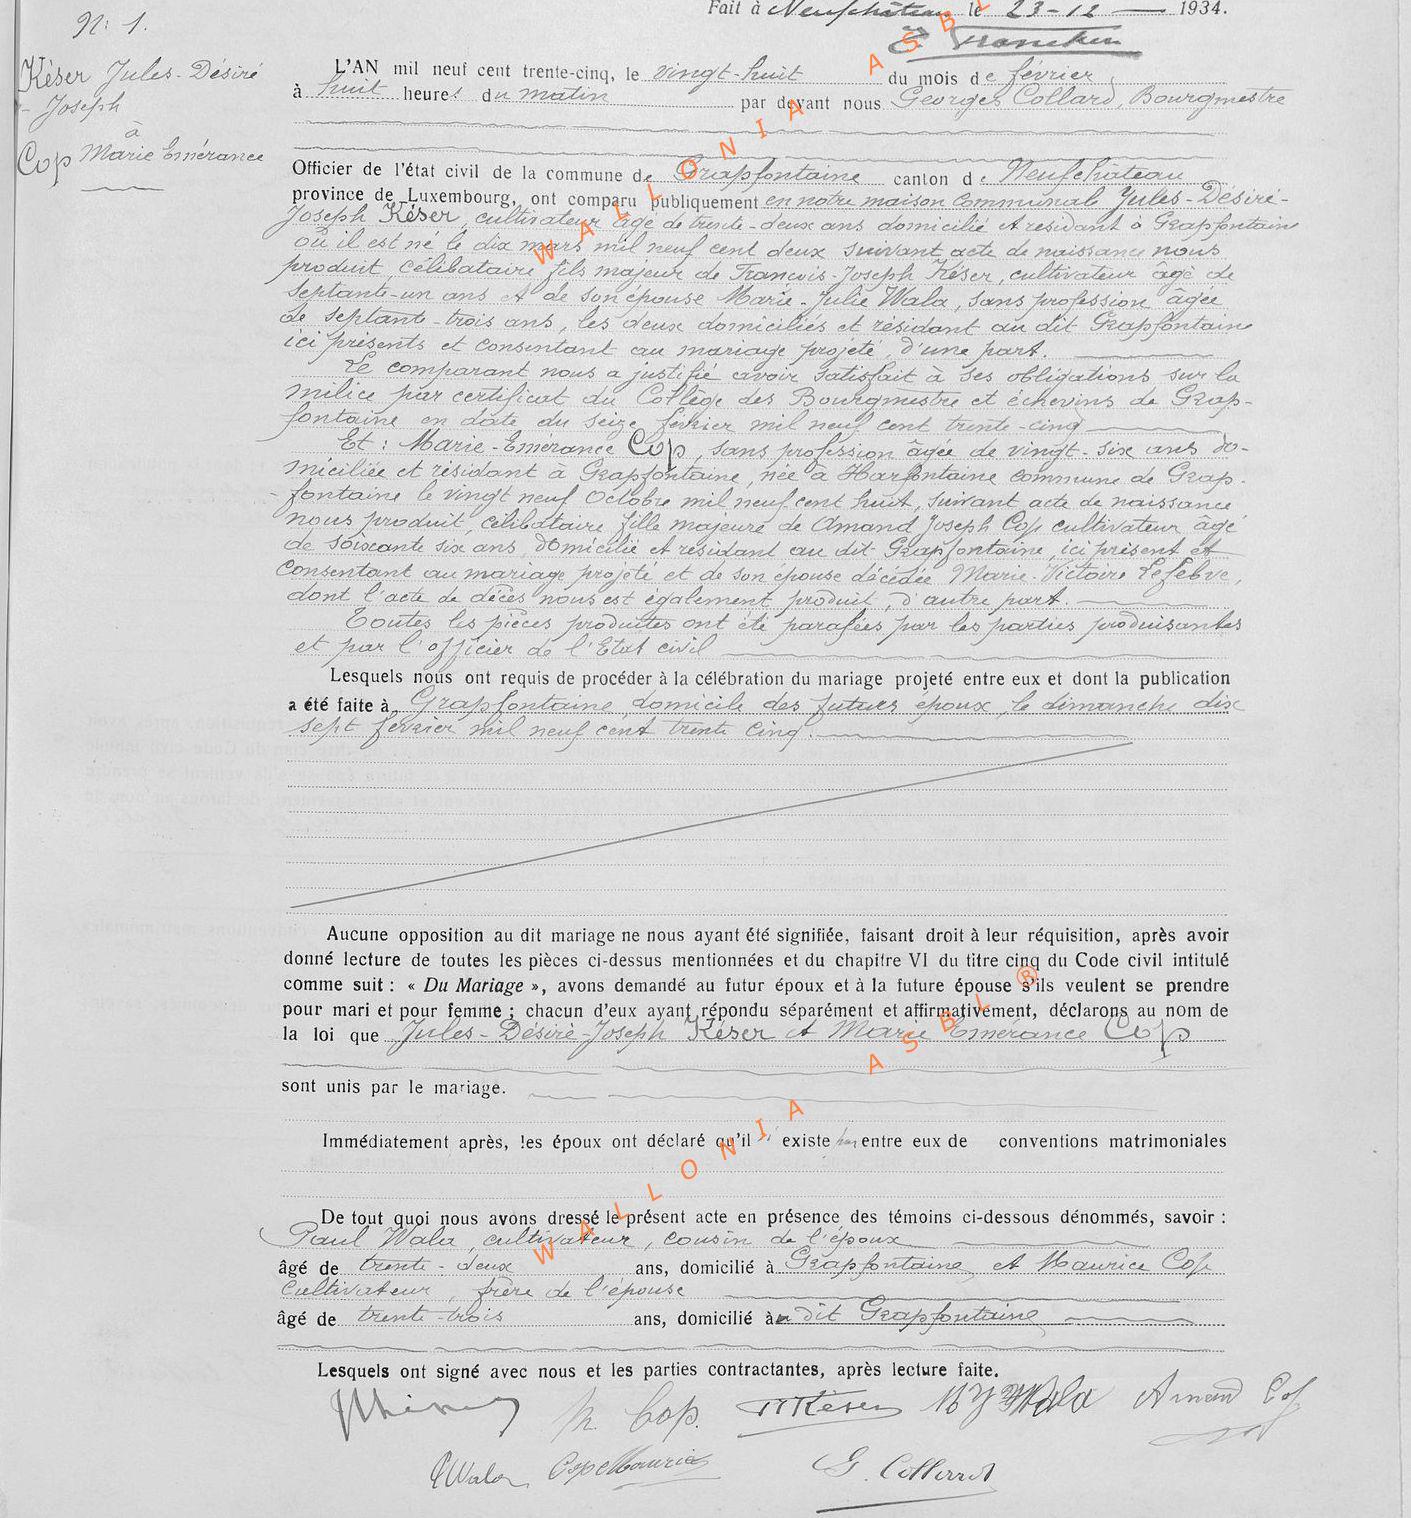 Fait à Neufchâteau le 23-12 1934.
N: 1.
Késer Jules-Désiré
- Joseph
à
Cop Marie Emérance
L'AN mil neuf cent trente-cinq, le vingt-huit du mois de février,
à huit heures du matin par devant nous Georges Collard, Bourgmestre
Officier de l'état civil de la commune de Grapfontaine canton de Neufchâteau
province de Luxembourg, ont comparu publiquement en notre maison communale Jules-Désiré-
Joseph Késer, cultivateur âgé de trente-deux ans domicilié et résidant à Grapfontaine
où il est né le dix mars mil neuf cent deux suivant acte de naissance nous
produit, célibataire, fils majeur de François-Joseph Késer, cultivateur âgé de
septante-un ans et de son épouse Marie-Julie Wala, sans profession âgée
de septante-trois ans, les deux domiciliés et résidant au dit Grapfontaine
ici présents et consentant au mariage projeté, d'une part.
Le comparant nous a justifié avoir satisfait à ses obligations sur la
milice par certificat du Collège des Bourgmestre et échevins de Grap-
fontaine en date du seize février mil neuf cent trente-cinq
Et: Marie-Emérance Cop, sans profession âgée de vingt-six ans do-
miciliée et résidant à Grapfontaine, née à Harfontaine commune de Grap-
-fontaine le vingt neuf Octobre mil neuf cent huit, suivant acte de naissance
nous produit, célibataire fille majeure de Amand Joseph Cop cultivateur âgé
de soixante six ans, domicilié et résidant au dit Grapfontaine, ici présent et
consentant au mariage projeté et de son épouse décédée Marie-Victoire Lefebve,
dont l'acte de décès nous est également produit, d'autre part.
Toutes les pièces produites ont été parafées par les parties produisantes
et par l'officier de l'Etat civil
Lesquels nous ont requis de procéder à la célébration du mariage projeté entre eux et dont la publication
a été faite à Grapfontaine, domicile des futurs époux, le dimanche dix
sept février mil neuf cent trente cinq.
Aucune opposition au dit mariage ne nous ayant été signifiée, faisant droit à leur réquisition, après avoir
donné lecture de toutes les pièces ci-dessus mentionnées et du chapitre VI du titre cinq du Code civil intitulé
comme suit : « Du Mariage », avons demandé au futur époux et à la future épouse s'ils veulent se prendre
pour mari et pour femme ; chacun d'eux ayant répondu séparément et affirmativement, déclarons au nom de
la loi que Jules-Désiré-Joseph Késer et Marie Emérance Cop
sont unis par le mariage.
Immédiatement après, les époux ont déclaré qu'il n' existe pas entre eux de conventions matrimoniales
De tout quoi nous avons dressé le présent acte en présence des témoins ci-dessous dénommés, savoir :
Paul Wala, cultivateur, cousin de l'époux
âgé de trente-deux ans, domicilié à Grapfontaine et Maurice Cop
cultivateur, frère de l'épouse
âgé de trente-trois ans, domicilié au dit Grapfontaine
Lesquels ont signé avec nous et les parties contractantes, après lecture faite.
M. Cop. Késer Wala Amand Cop
Wala Cop Maurice G. Collard
WALLONIA ASBL
WALLONIA ASBL ®